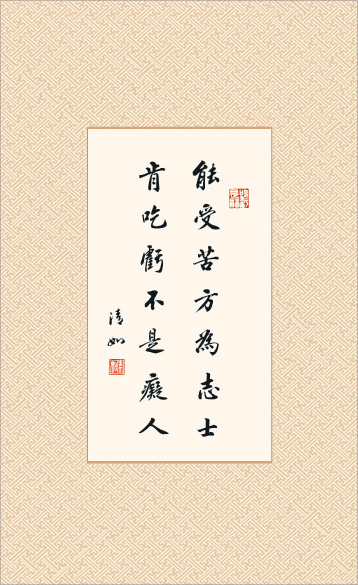 能受苦方為志士
肯吃虧不是癡人
清如